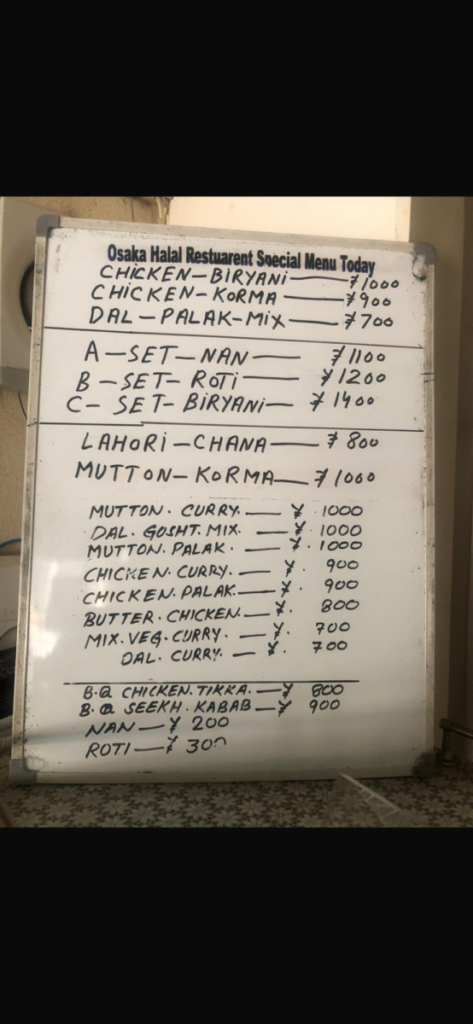 Osaka Halal Restuarent Special Menu Today
CHICKEN-BIRYANI—¥1000
CHICKEN-KORMA—¥900
DAL-PALAK-MIX—¥700
A-SET-NAN—¥1100
B-SET-ROTI—¥1200
C-SET-BIRYANI—¥1400
LAHORI-CHANA—¥800
MUTTON-KORMA—¥1000
MUTTON. CURRY.—¥ 1000
DAL. GOSHT. MIX.—¥. 1000
MUTTON. PALAK.—¥. 1000
CHICKEN. CURRY.—¥. 900
CHICKEN. PALAK.—¥. 900
BUTTER. CHICKEN.—¥. 800
MIX. VEG. CURRY.—¥. 700
DAL. CURRY.—¥. 700
B.Q CHICKEN. TIKKA.—¥ 800
B.Q SEEKH. KABAB—¥ 900
NAN—¥ 200
ROTI—¥ 300